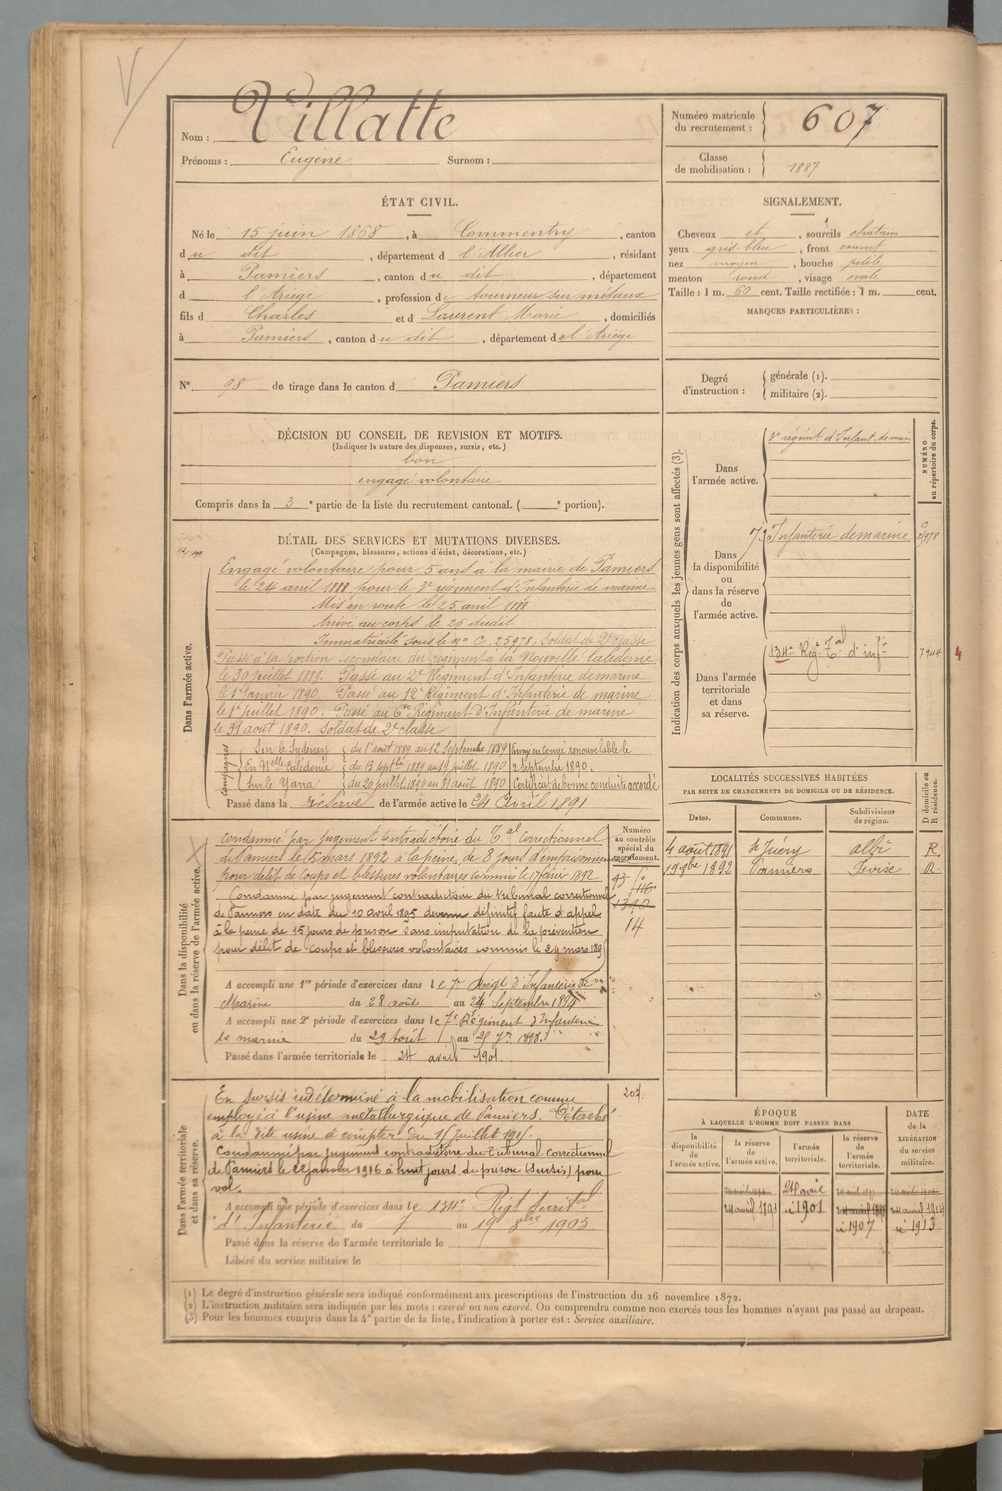 Nom : Villatte
Prénoms : Eugène Surnom :
Numéro matricule du recrutement : 607
Classe de mobilisation : 1887
ÉTAT CIVIL.
Né le 15 juin 1868, à Commentry, canton
du dit, département d l'Allier, résidant
à Pamiers, canton du dit, département
d l'Ariège, profession de tourneur sur métaux
fils d Charles et d Laurent Marie, domiciliés
à Pamiers, canton du dit, département de l'Ariège
SIGNALEMENT.
Cheveux et, sourcils chatain
yeux gris bleu, front couvert
nez moyen, bouche petite
menton rond, visage ovale
Taille : 1 m. 60 cent. Taille rectifiée : 1 m. cent.
MARQUES PARTICULIÈRES :
N° 98 de tirage dans le canton d Pamiers
Degré d'instruction : générale (1).
militaire (2).
DÉCISION DU CONSEIL DE REVISION ET MOTIFS.
(Indiquer la nature des dispenses, sursis, etc.)
bon
engagé volontaire
Compris dans la 3e partie de la liste du recrutement cantonal. ( e portion).
DÉTAIL DES SERVICES ET MUTATIONS DIVERSES.
(Campagnes, blessures, actions d'éclat, décorations, etc.)
Dans l'armée active.
Engagé volontaire pour 5 ans à la mairie de Pamiers
le 24 avril 1888 pour le 3e régiment d'Infanterie de marine
Mis en route le 25 avril 1888
Arrivé au corps le 26 dudit
Immatriculé sous le no C. 25978. Soldat de 2e classe
Passé à la portion secondaire du régiment à la Nouvelle Calédonie
le 30 juillet 1889. Passé au 2e Régiment d'Infanterie de marine
le 1er janvier 1890. Passé au 12e Régiment d'Infanterie de marine
le 1er juillet 1890. Passé au 6e Régiment d'Infanterie de marine
le 31 août 1890. Soldat de 2e classe
Campagnes
Sur le Sydeney du 1er août 1889 au 12 Septembre 1889 Envoyé en congé renouvelable le
En Nlle Calédonie du 13 septbre 1889 au 19 juillet 1890 2 septembre 1890.
Sur le Yarra du 20 juillet 1890 au 31 août 1890 Certificat de bonne conduite accordé
Passé dans la réserve de l'armée active le 24 Avril 1891
Indication des corps auxquels les jeunes gens sont affectés (3).
NUMÉRO au répertoire du corps.
Dans l'armée active.
3e régimt d'Infant. de mar
Dans la disponibilité ou dans la réserve de l'armée active.
7 Infanterie de marine
Dans l'armée territoriale et dans sa réserve.
134e Régt Tal d'infie 7944 4
LOCALITÉS SUCCESSIVES HABITÉES
PAR SUITE DE CHANGEMENTS DE DOMICILE OU DE RÉSIDENCE.
Dates. Communes. Subdivisions de région. D domicile ou R résidence.
4 août 1891 St Juéry Albi R.
19 9bre 1892 Pamiers Foix R.
Dans la disponibilité ou dans la réserve de l'armée active.
Numéro au contrôle spécial du recrutement.
Condamné par jugement contradictoire du Tal Correctionnel
de Pamiers le 15 mars 1892 à la peine de 8 jours d'emprisonnement
pour délit de Coups et blessures volontaires commis le 17 février 1892
Condamné par jugement contradictoire du tribunal correctionnel
de Pamiers en date du 10 avril 1895 devenu définitif faute d'appel
à la peine de 15 jours de prison sans imputation de la prévention
pour délit de coups et blessures volontaires commis le 29 mars 189
14
A accompli une 1re période d'exercices dans le 7e Régt d'Infanterie de
Marine du 28 août au 24 Septembre 1894
A accompli une 2e période d'exercices dans le 7e Régiment d'Infanterie
de marine du 29 Août au 25 7re 1898.
Passé dans l'armée territoriale le 24 avril 1901
Dans l'armée territoriale et dans sa réserve.
207
En sursis indéterminé à la mobilisation comme
employé à l'usine métallurgique de Pamiers. Détaché
à la dite usine à compter du 15 juillet 1915.
Condamné par jugement contradictoire du tribunal Correctionnel
de Pamiers le 22 janvier 1916 à huit jours de prison (Sursis) pour
vol.
A accompli une période d'exercices dans le 134e Régt territal
d'Infanterie du 7 au 19 8bre 1903
Passé dans la réserve de l'armée territoriale le
Libéré du service militaire le
ÉPOQUE
À LAQUELLE L'HOMME DOIT PASSER DANS
la disponibilité de l'armée active. la réserve de l'armée active. l'armée territoriale. la réserve de l'armée territoriale.
DATE de la LIBÉRATION du service militaire.
24 avril 1891 24 avril 1901 1907 24 avril 1913
(1) Le degré d'instruction générale sera indiqué conformément aux prescriptions de l'instruction du 26 novembre 1872.
(2) L'instruction militaire sera indiquée par les mots : exercé ou non exercé. On comprendra comme non exercés tous les hommes n'ayant pas passé au drapeau.
(3) Pour les hommes compris dans la 4e partie de la liste, l'indication à porter est : Service auxiliaire.